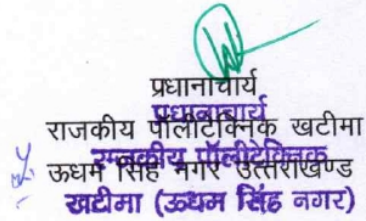 प्रधानाचार्य
प्रधानाचार्य
राजकीय पॉलीटेक्निक खटीमा
राजकीय पॉलीटेक्निक
ऊधम सिंह नगर उत्तराखण्ड
खटीमा (ऊधम सिंह नगर)